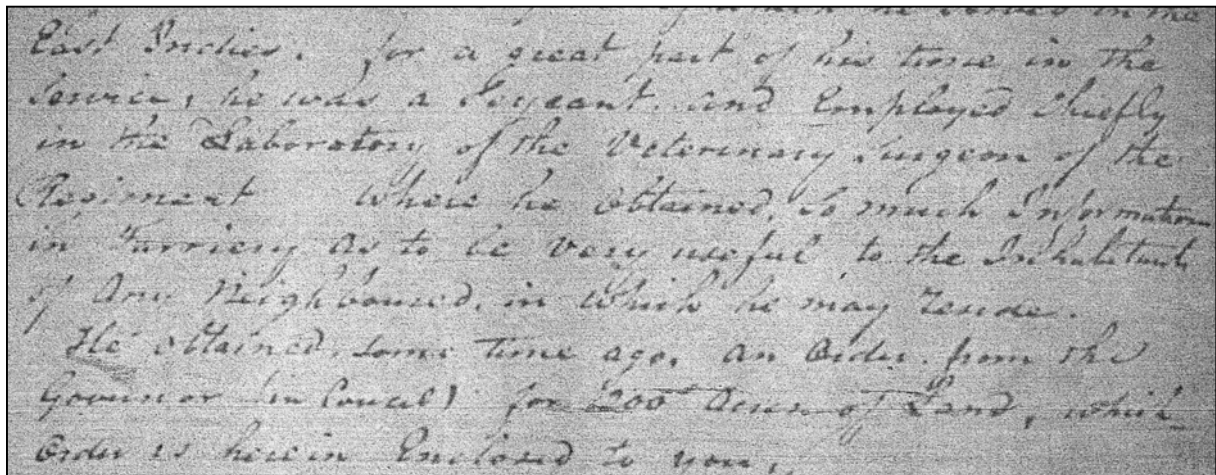 he served in the
East Indies. for a great part of his time in the
Service, he was a Sergeant. and Employed Chiefly
in the Laboratory of the Veterinary Surgeon of the
Regiment Where he obtained, So much Information
in Farriery as to be very useful to the Inhabitants
of Any Neighboured, in which he may reside.
He obtained, some time ago, an Order from the
Governor (in Council) for 200 Acres of Land, which
Order is herein Enclosed to you,